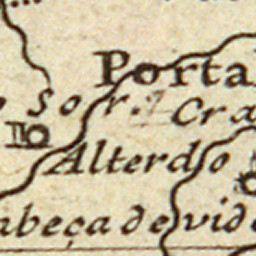 Porta
Sor.
Cra
Alterdo
abeça de vide